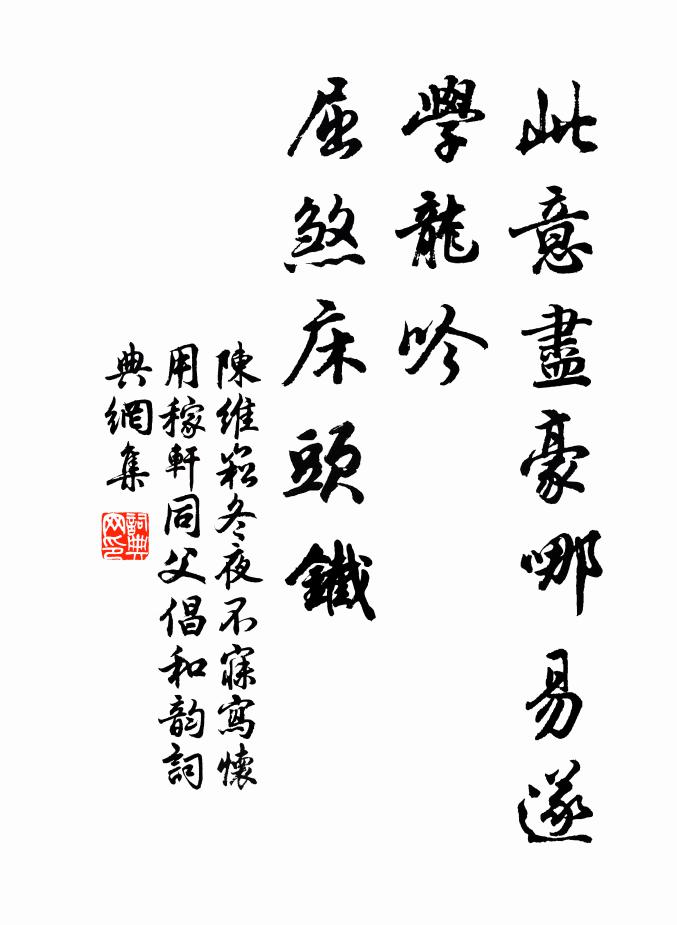 此意盡豪哪易遂
學龍吟
屈煞床頭鐵
陳維崧冬夜不寐寫懷
用稼軒同父倡和韵詞
典網集
詞典
网印